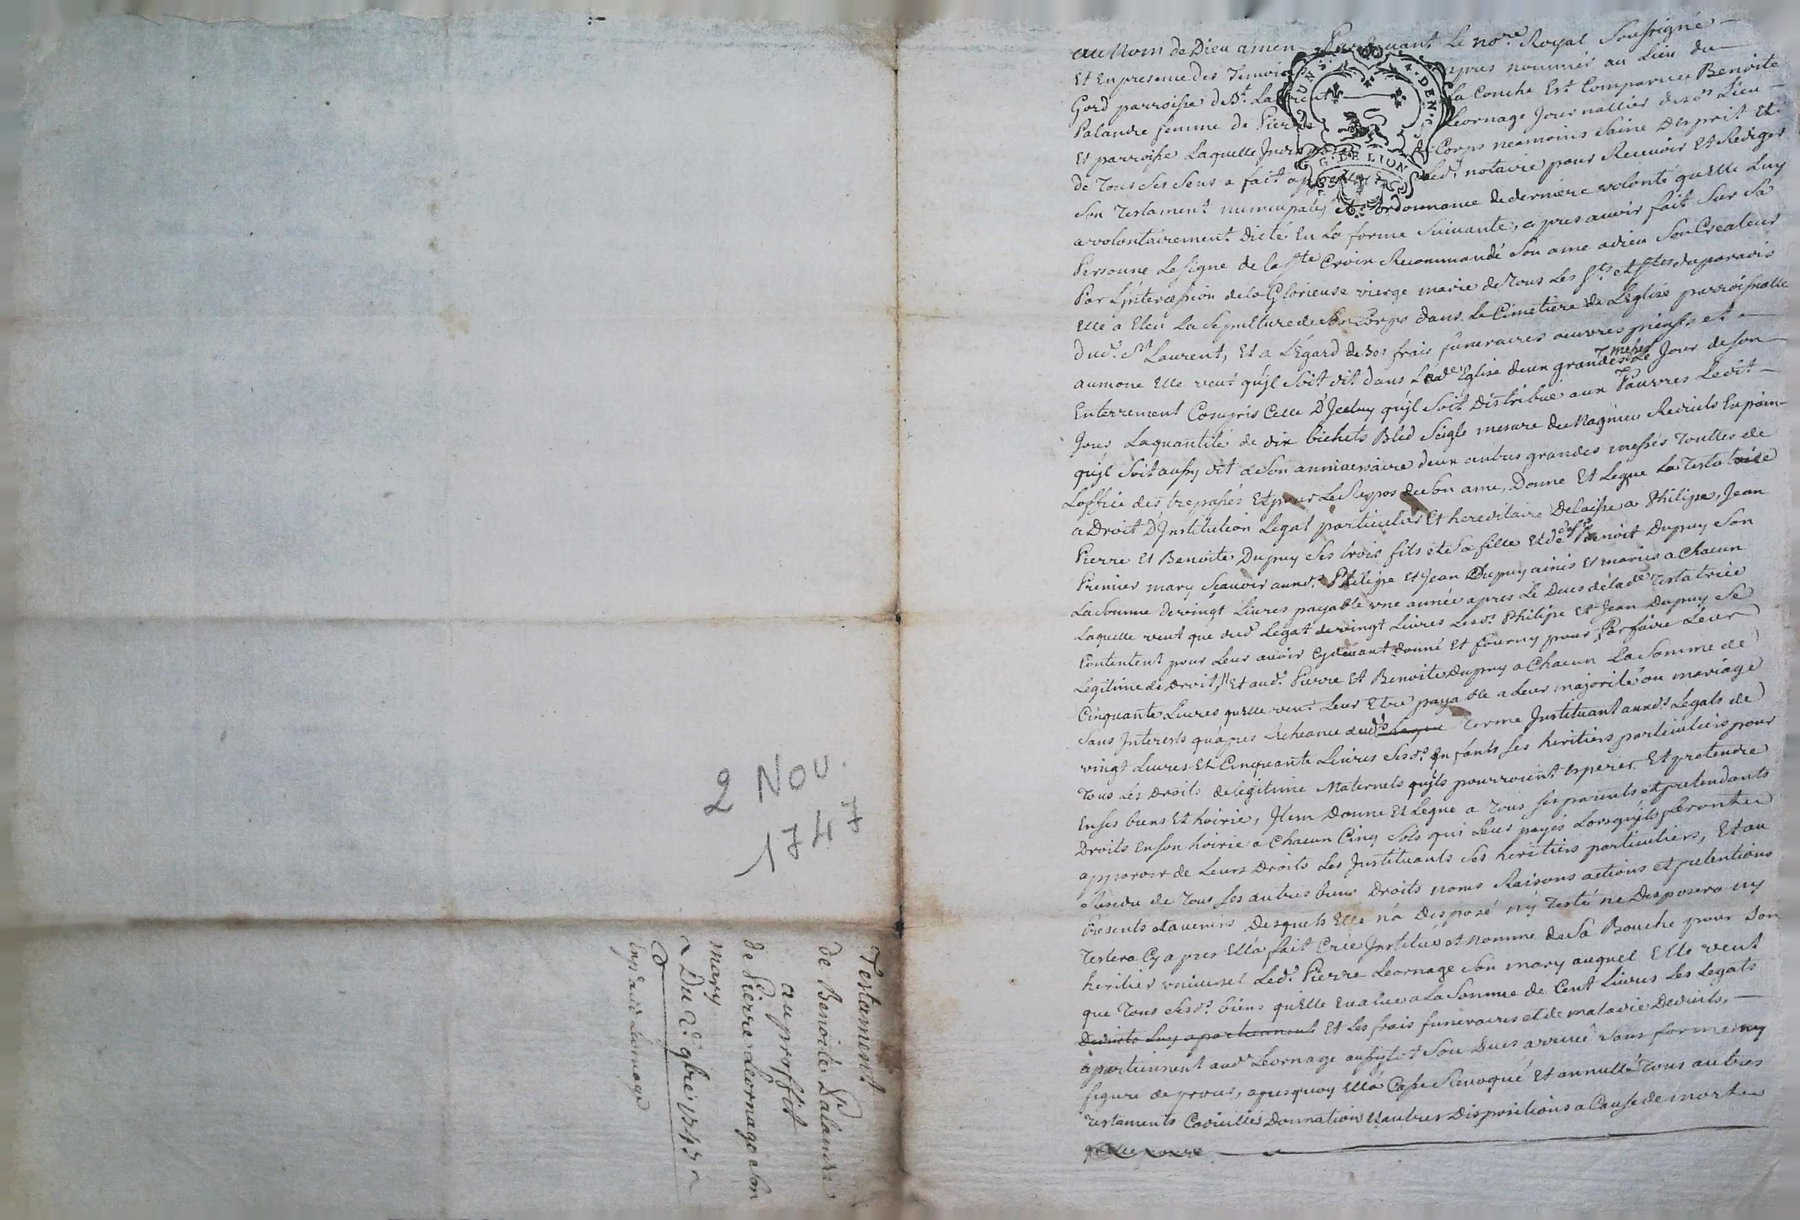 au Nom de Dieu amen Pardevant Le no.re Royal Soussigné
Et En presence des Temoins apres nommés au Lieu du
Gord parroisse de St. Laurent la Conche Est Comparue Benoite
Palandre femme de Pierre Leornage Journallier dud. Lieu
Et parroisse Laquelle de Corps neamoins Saine Desprit Et
de Tous Ses Sens a fait appeller led. notaire pour Recevoir Et Rediger
Son Testament nuncupatif Et ordonnance de derniere volonté quelle Luy
a volontairement Dicté En La forme Suivante, apres avoir fait Sur Sa
Personne Le signe de la Ste Croix Recommandé Son ame a dieu Son Createur
Par L'intercession de la Glorieuse vierge marie de Tous Les Sts et Stes du paradis
Elle a Eleu La Sepulture de Son Corps dans Le Cimetiere de L'Eglise parroissialle
dud. St Laurent, Et a L'Egard de Ses frais funeraires oeuvres pieuses et
aumone Elle veut qu'jl Soit dit dans Lad.e Eglise deux grandes messes Le Jour de Son
Enterrement Compris Celle D'Jceluy qu'jl Soit Distribué aux Pauvres Ledit
Jour Laquantité de dix bichets Bled Seigle mesure de Magnieu Reduits En pain
qu'jl Soit aussy dit a Son anniversaire deux autres grandes messes Touttes de
L'office des trepassés Et pour Le Repos de Son ame, Donne Et Legue La Testatrice
a Droit D'Jnstitution Legat particulier Et hereditaire Delaisse a Philipe, Jean
Pierre Et Benoite Dupuy Ses trois fils et Sa fille Et de deff. Benoit Dupuy Son
Premier mary Scavoir auxd. Philipe Et Jean Dupuy ainés Et mariés a Chacun
La Somme de vingt Livres payable une année apres Le Deces de lad.e Testatrice
Laquelle veut que dud. Legat de vingt Livres Lesd. Philipe Et Jean Dupuy Se
Contentent pour Leur avoir Cydevant donné Et fourny pour Parfaire Leur
Legitime de Droit, Et aud. Pierre Et Benoite Dupuy a Chacun La Somme de
Cinquante Livres quelle veut Leur Etre payable a Leur majorité ou mariage
Sans Jnterests qu'apres Lecheance dud. Terme Jnstituant auxd. Legats de
vingt Livres Et Cinquante Livres Sesd. Enfants Ses heritiers particuliers pour
Tous Les Droits de legitime Maternels qu'jls pourroient Esperer Et pretendre
En Ses biens Et hoirie, Jtem Donne Et Legue a Tous Ses parents et pretendants
Droits En Son hoirie a Chacun Cinq Sols qui Leur payés Lorsqu'jls feront
apparoir de Leurs Droits Les Jnstituants Ses heritiers particuliers, Et au
Residu de Tous Les autres biens Droits noms Raisons actions et pretentions
Presents et avenirs Desquels Elle n'a Disposé ny Testé ne Disposera ny
Testera Cy apres Ella fait Créé Jnstitué et Nomme de Sa Bouche pour Son
heritier universel Led. Pierre Leornage Son mary auquel Elle veut
que Tous Sesd. biens qu'Elle Evalue a La Somme de Cent Livres Les Legats
Deduits Luy apartiennent Et Les frais funeraires et de maladie Deduits,
apartiennent aud. Leornage aussytot Son Deces arrivé Sans forme ny
figure de proces, apres quoy Ella Cassé Revoqué Et annullé Tous autres
Testaments Codicille Donnation Et autres Dispositions a Cause de mort
G. DE LION
2 Nov.
1747
Testament
de Benoite Palandre
au proffit
de Pierre Leornage Son
mary
Du 2e 9bre 1747